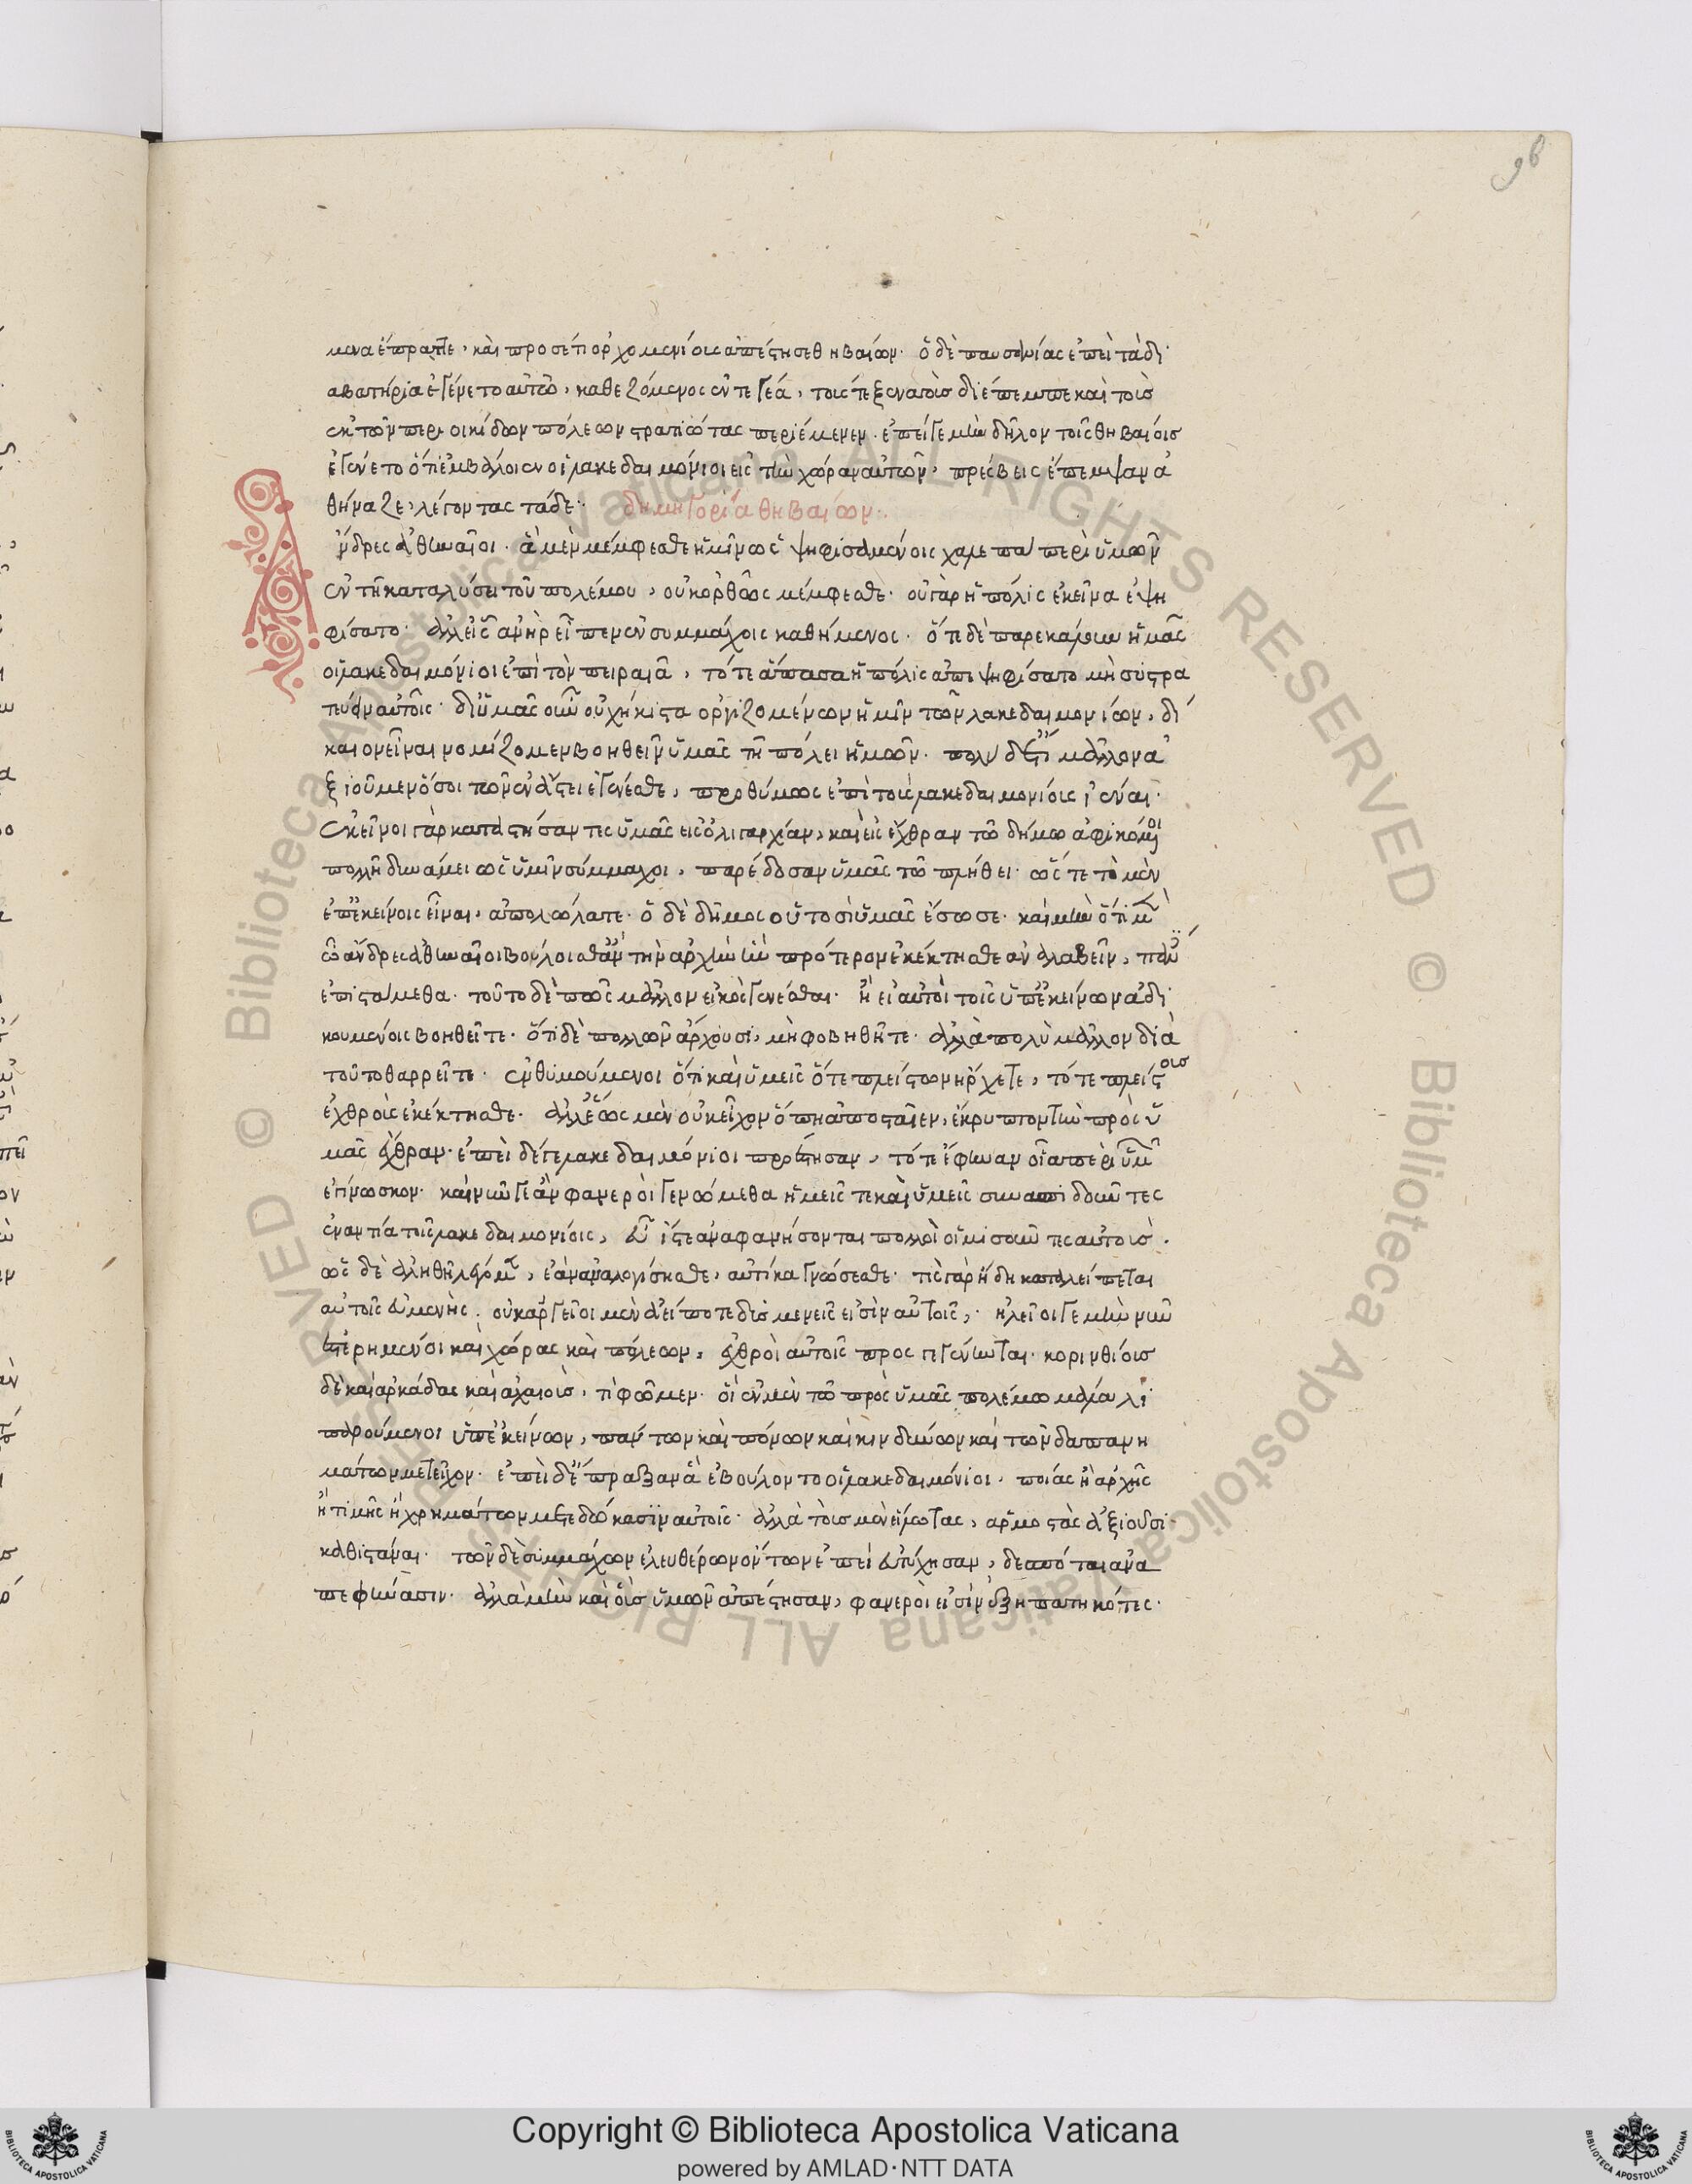 96
μενα ἔπραττε, καὶ προσέτι ὀρχομενίους ἀπέστησε θηβαίων. ὁ δὲ παυσανίας ἐπεὶ τὰ δι
αβατήρια ἐγένετο αὐτῶ, καθεζόμενος ἐν τεγέα, τούς τε ξεναγοὺς διέπεμπε καὶ τοὺς
ἐκ τῶν περιοικίδων πόλεων στρατιώτας περιέμενεν. ἐπεί γε μὴν δῆλον τοῖς θηβαίοις
ἐγένετο ὅτι ἐμβάλοιεν οἱ λακεδαιμόνιοι εἰς τὴν χώραν αὐτῶν, πρέσβεις ἔπεμψαν ἀ
θήναζε, λέγοντας τάδε· δημηγορία θηβαίων.
Ἄνδρες ἀθηναῖοι. ἃ μὲν μέμφεσθε ἡμῖν ὡς ψηφισαμένοις χαλεπὰ περὶ ὑμῶν
ἐν τῆ καταλύσει τοῦ πολέμου, οὐκ ὀρθῶς μέμφεσθε. οὐ γὰρ ἡ πόλις ἐκεῖνα ἐψη
φίσατο. ἀλλ' εἷς ἀνὴρ εἶπεν ἐν συμμάχοις καθήμενος. ὅτε δὲ παρεκάλουν ἡμᾶς
οἱ λακεδαιμόνιοι ἐπὶ τὸν πειραιᾶ, τότε ἅπασα ἡ πόλις ἀπεψηφίσατο μὴ συστρα
τεύειν αὐτοῖς. δι' ὑμᾶς οὖν οὐχ ἥκιστα ὀργιζομένων ἡμῖν τῶν λακεδαιμονίων, δί
καιον εἶναι νομίζομεν βοηθεῖν ὑμᾶς τῆ πόλει ἡμῶν. πολὺ δ' ἔτι μᾶλλον ἀ
ξιοῦμεν ὅσοι τῶν ἐν ἄστει ἐγένεσθε, προθύμως ἐπὶ τοὺς λακεδαιμονίους ἰέναι.
ἐκεῖνοι γὰρ καταστήσαντες ὑμᾶς εἰς ὀλιγαρχίαν, καὶ εἰς ἔχθραν τῶ δήμω ἀφικόμενοι
πολλῆ δυνάμει ὡς ὑμῖν σύμμαχοι, παρέδοσαν ὑμᾶς τῶ πλήθει. ὥστε τὸ μὲν
ἐπ' ἐκείνοις εἶναι, ἀπολώλατε. ὁ δὲ δῆμος οὑτοσὶ ὑμᾶς ἔσωσε. καὶ μὴν ὅτι μὲν
ὦ ἄνδρες ἀθηναῖοι βούλοισθ' ἂν τὴν ἀρχὴν ἣν πρότερον ἐκέκτησθε ἀναλαβεῖν, πάντες
ἐπιστάμεθα. τοῦτο δὲ πῶς μᾶλλον εἰκὸς γενέσθαι. ἢ εἰ αὐτοὶ τοῖς ὑπ' ἐκείνων ἀδι
κουμένοις βοηθεῖτε. ὅτι δὲ πολλῶν ἄρχουσι, μὴ φοβηθῆτε. ἀλλὰ πολὺ μᾶλλον διὰ
τοῦτο θαρρεῖτε. ἐνθυμούμενοι ὅτι καὶ ὑμεῖς ὅτε πλείστων ἤρχετε, τότε πλείστους
ἐχθροὺς ἐκέκτησθε. ἀλλ' ἕως μὲν οὐκ εἶχον ὅπη ἀποσταῖεν, ἔκρυπτον τὴν πρὸς ὑ
μᾶς ἔχθραν. ἐπεὶ δέ γε λακεδαιμόνιοι προέστησαν, τότε ἔφηναν οἷα περὶ ὑμῶν
ἐγίνωσκον. καὶ νῦν γε ἂν φανεροὶ γενώμεθα ἡμεῖς τε καὶ ὑμεῖς συνασπιδοῦντες
ἐναντία τοῖς λακεδαιμονίοις, εὖ ἴστε ἀναφανήσονται πολλοὶ οἱ μισοῦντες αὐτούς.
ὡς δὲ ἀληθῆ λέγομεν, ἐὰν ἀναλογίσησθε, αὐτίκα γνώσεσθε. τίς γὰρ ἤδη καταλείπεται
αὐτοῖς εὐμενής. οὐκ ἀργεῖοι μὲν ἀεί ποτε δυσμενεῖς εἰσὶν αὐτοῖς, ἠλεῖοί γε μὴν νῦν
ἐστερημένοι καὶ χώρας καὶ πόλεων, ἐχθροὶ αὐτοῖς προσγεγένηνται. κορινθίους
δὲ καὶ ἀρκάδας καὶ ἀχαιοὺς, τί φῶμεν. οἳ ἐν μὲν τῶ πρὸς ὑμᾶς πολέμω μάλα λι
παρούμενοι ὑπ' ἐκείνων, πάντων καὶ πόνων καὶ κινδύνων καὶ τῶν δαπανη
μάτων μετεῖχον. ἐπεὶ δ' ἔπραξαν ἃ ἐβούλοντο οἱ λακεδαιμόνιοι, ποίας ἢ ἀρχῆς
ἢ τιμῆς ἢ χρημάτων μεταδεδώκασιν αὐτοῖς. ἀλλὰ τοὺς μὲν εἵλωτας, ἁρμοστὰς ἀξιοῦσι
καθιστάναι. τῶν δὲ συμμάχων ἐλευθέρων ὄντων ἐπεὶ εὐτύχησαν, δεσπόται ἀνα
πεφήνασιν. ἀλλὰ μὴν καὶ οὓς ὑμῶν ἀπέστησαν, φανεροί εἰσιν ἐξηπατηκότες.
Copyright © Biblioteca Apostolica Vaticana
powered by AMLAD·NTT DATA